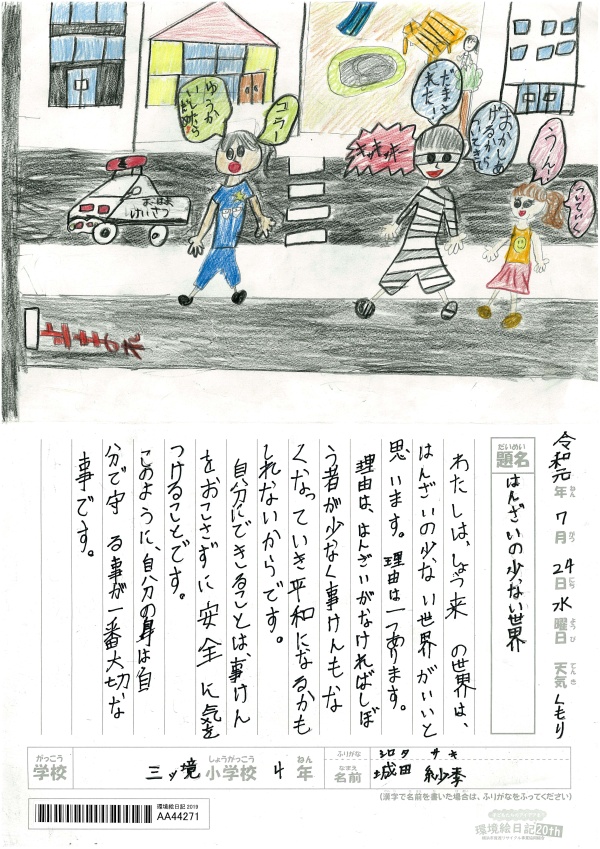 コラー
ゆうかいしたな
おはよ
けいさつ
キャキャキャ
だまされた！
おかしあげるからいこう
うん！
ついてい
止まれ
令和元年 7月 24日 水曜日 天気 くもり
ねん がつ にち ようび てんき
だいめい
題名 はんざいの少ない世界
わたしは、しょう来の世界は、
はんざいの少ない世界がいいと
思います。理由は一つあります。
理由は、はんざいがなければしぼ
う者が少なく事けんもな
くなっていき平和になるかも
しれないからです。
自分にできることは、事けん
をおこさずに安全に気を
つけることです。
このように、自分の身は自
分で守る事が一番大切な
事です。
がっこう しょうがっこう ねん
学校 三ッ境小学校 4年
ふりがな シロタ サキ
なまえ
名前 城田 紗季
(漢字で名前を書いた場合は、ふりがなをふってください)
環境絵日記 2019
AA44271
環境絵日記20th